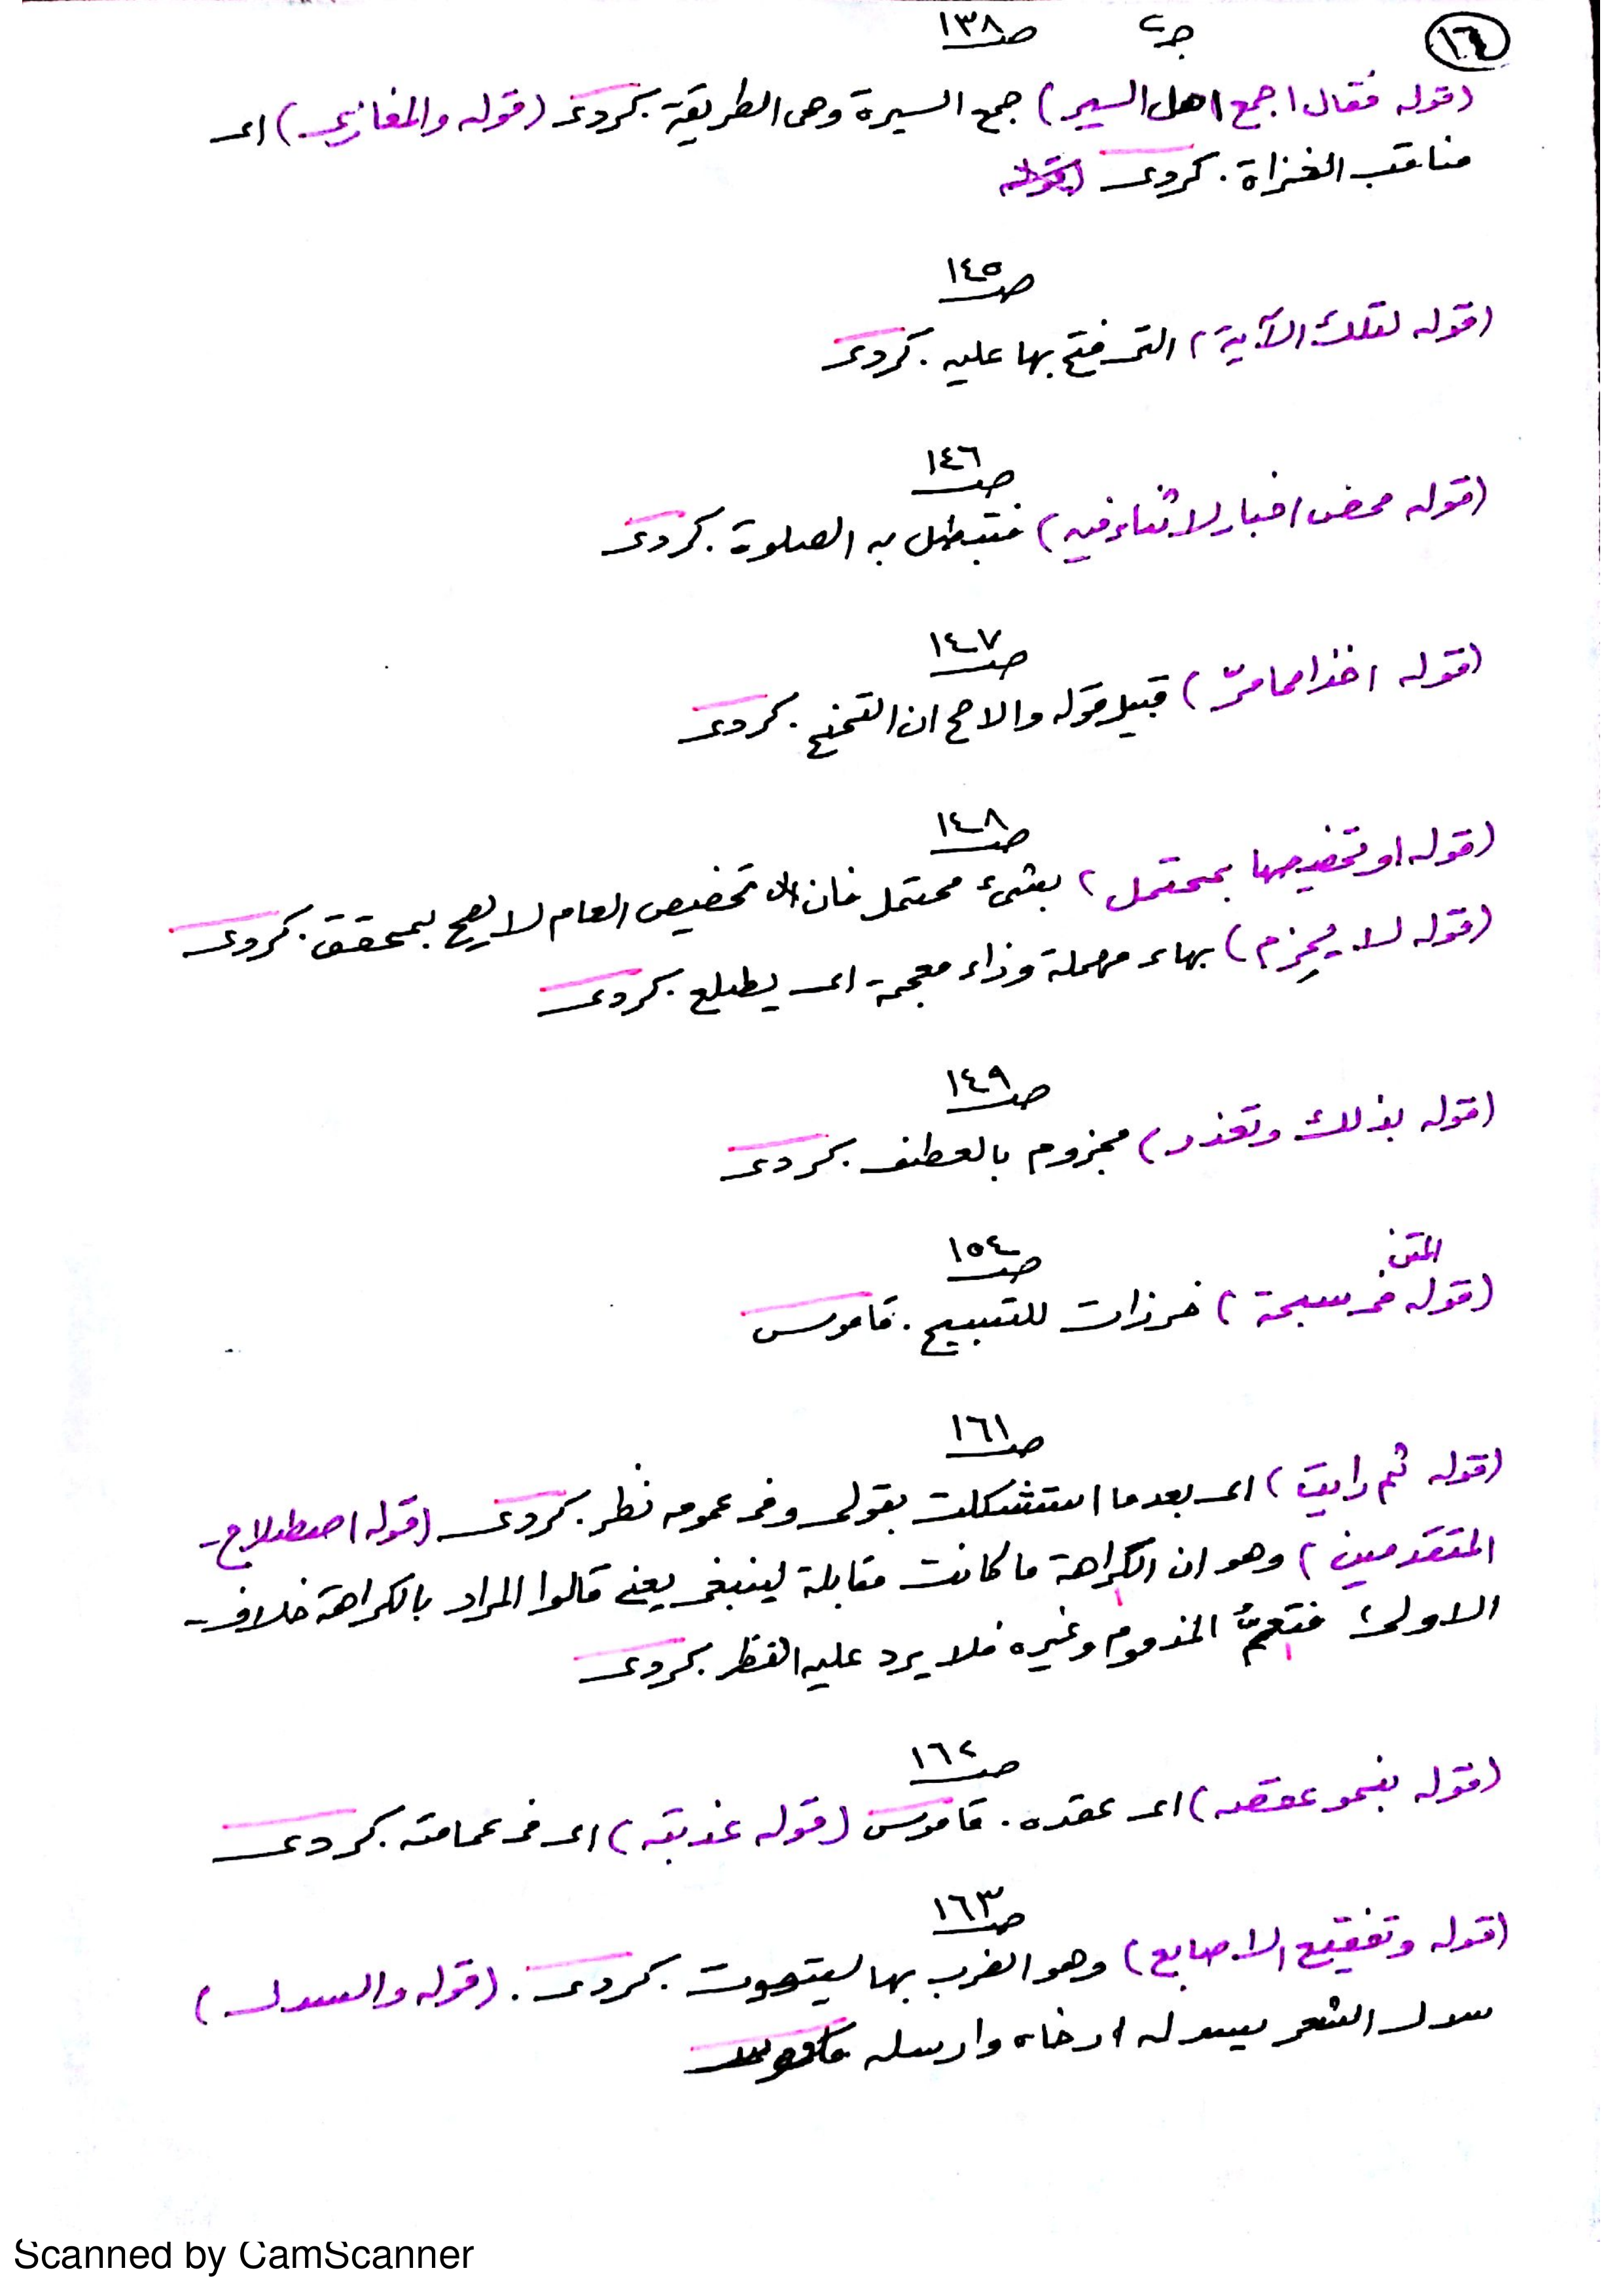 ١٦
ج٢ صـ ١٣٨
(قوله فقال اجمع اهل السير) جمع السيرة وهى الطريقة. كردى (قوله والمغازى) اى
مناقب الغزاة. كردى (قوله
صـ ١٤٥
(قوله لتلك الآية) التى فتح بها عليه. كردى
صـ ١٤٦
(قوله محض اخبار لا ثناء فيه) فتبطل به الصلوة. كردى
صـ ١٤٧
(قوله اخذا مما مرّ) قبيل قوله والاصح ان التنحنح. كردى
صـ ١٤٨
(قوله او تخصيصها بمحتمل) بشىء محتمل فان تخصيص العام لا يصح بمحقق. كردى
(قوله لا يحزم) بهاء مهملة وزاء معجمة اى يطلع. كردى
صـ ١٤٩
(قوله بذلك وتعذر) مجزوم بالعطف. كردى
صـ ١٥٤
المتن
(قوله فى سبحة) خرزات للتسبيح. قاموس
صـ ١٦١
(قوله ثم رايت) اى بعدما استشكلت بقولى وفى عمومه نظر. كردى (قوله اصطلاح
المتقدمين) وهو ان الكراهة ما كانت مقابلة لينبغى يعنى قالوا المراد بالكراهة خلاف
الاولى فتعمُّ المذموم وغيره فلا يرد عليه النظر. كردى
صـ ١٦٢
(قوله بنحو عقصه) اى عقده. قاموس (قوله عذبته) اى فى عمامته. كردى
صـ ١٦٣
(قوله وتفقيع الاصابع) وهو الضرب بها ليتصوت. كردى. (قوله والسدل)
سدل الشعر يسدله ارخاه وارسله قاموس
Scanned by CamScanner